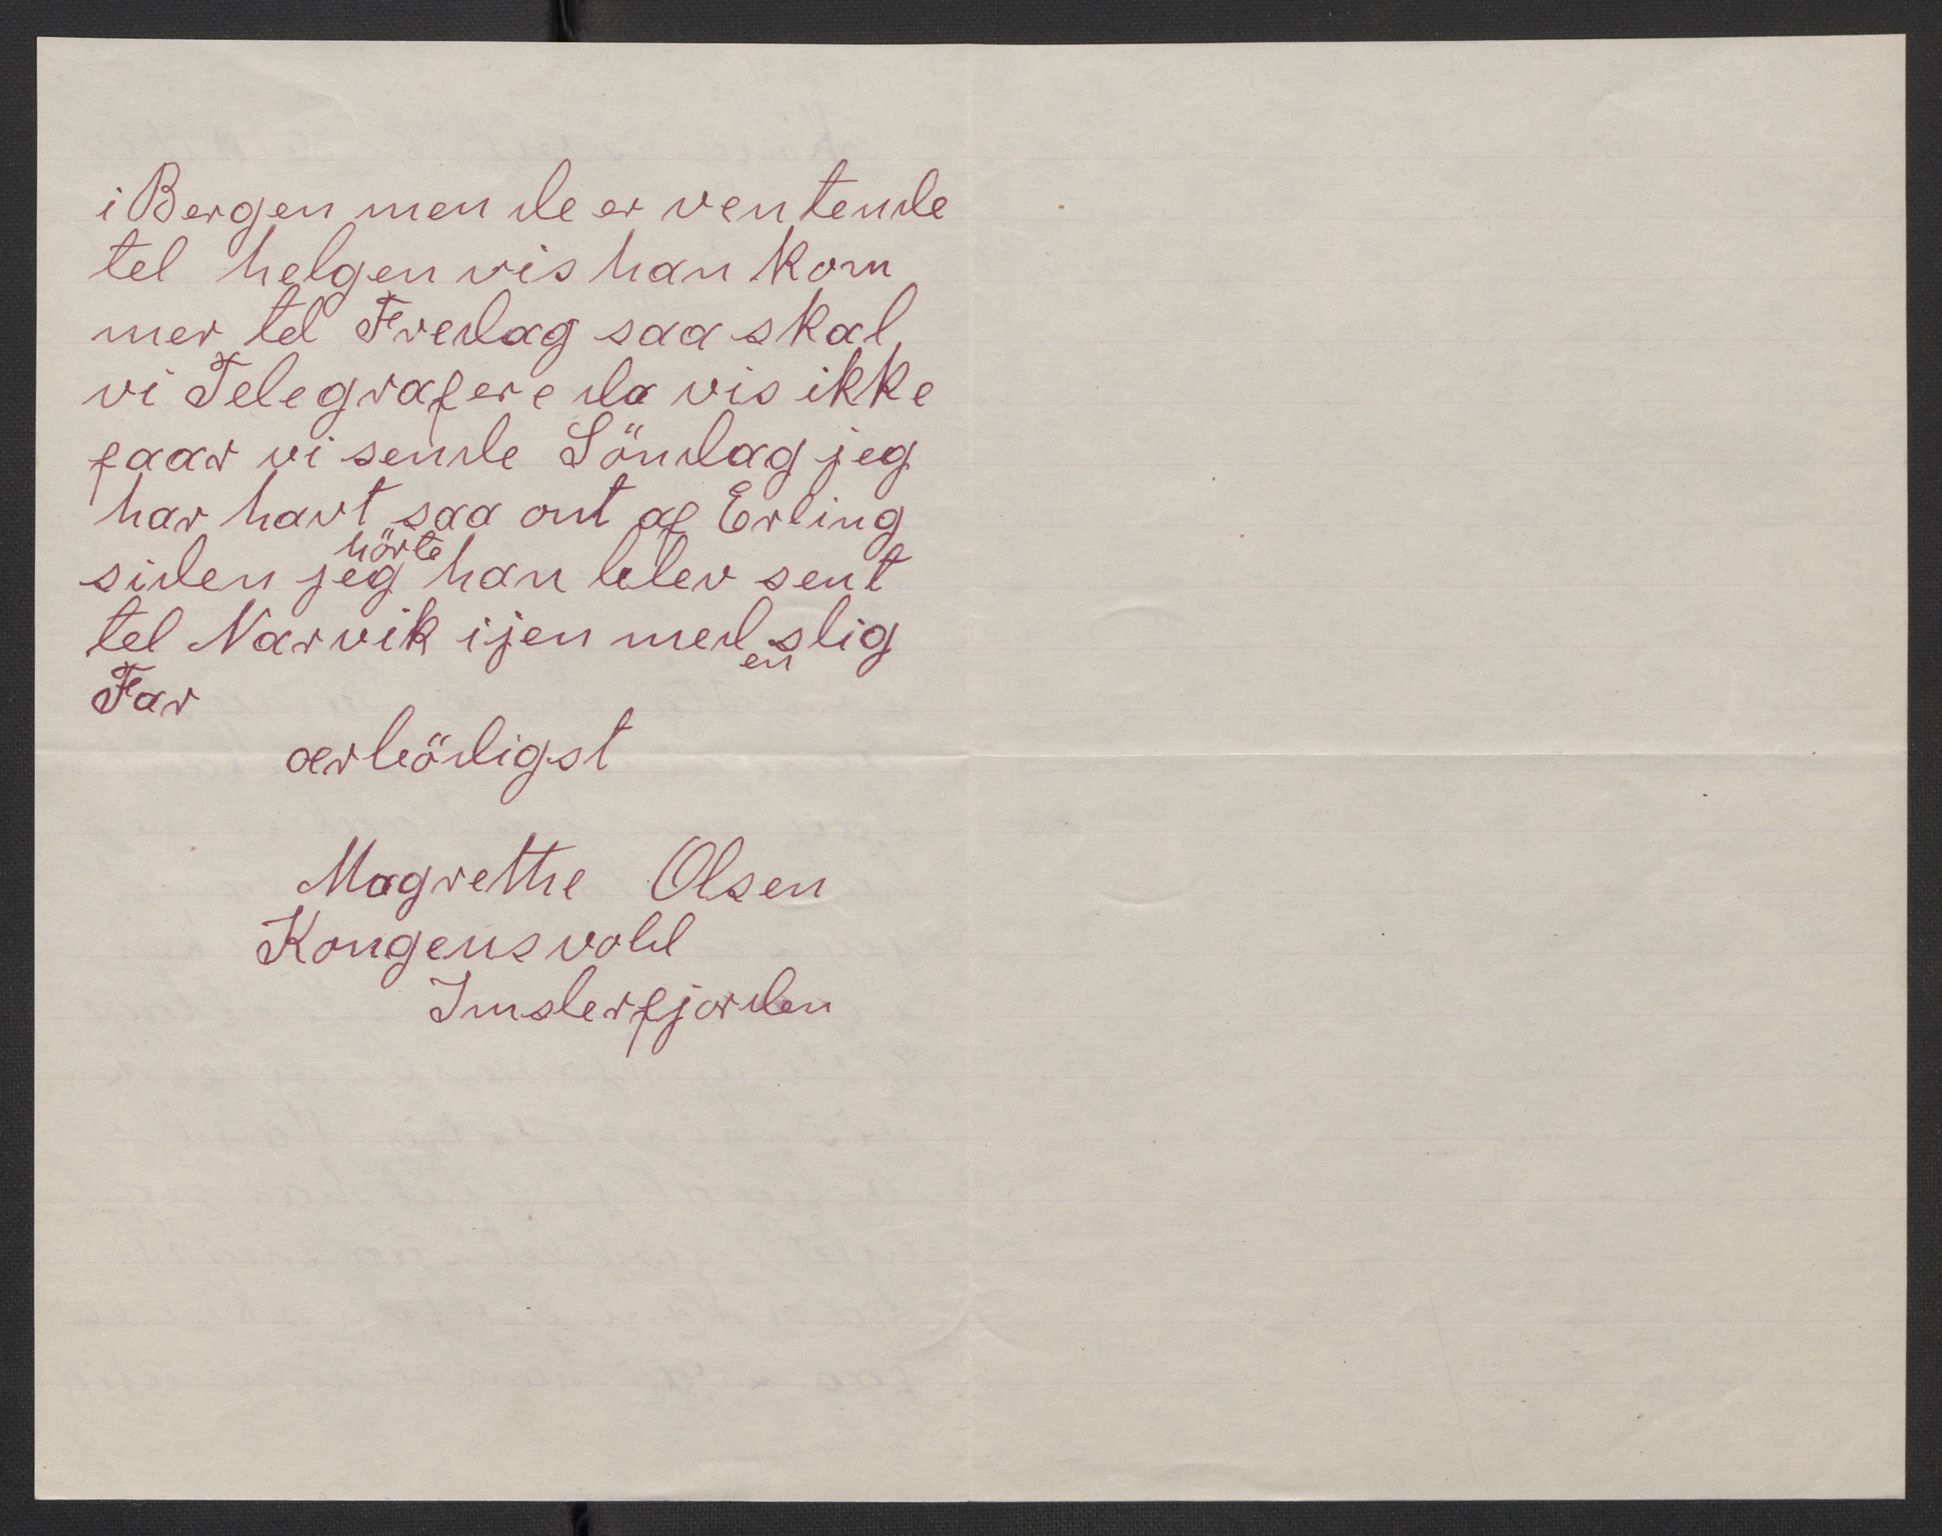 i Bergen men de er ventende
tel helgen vis han kom
mer tel Fredag saa skal
vi Telegrafere da vis ikke
faar vi sende Söndag jeg
har havt saa ont af Erling
siden jeg hörte han blev sent
tel Narvik ijen med en slig
Far
ærbödigst
Magrethe Olsen
Kongensvold
Imslerfjorden